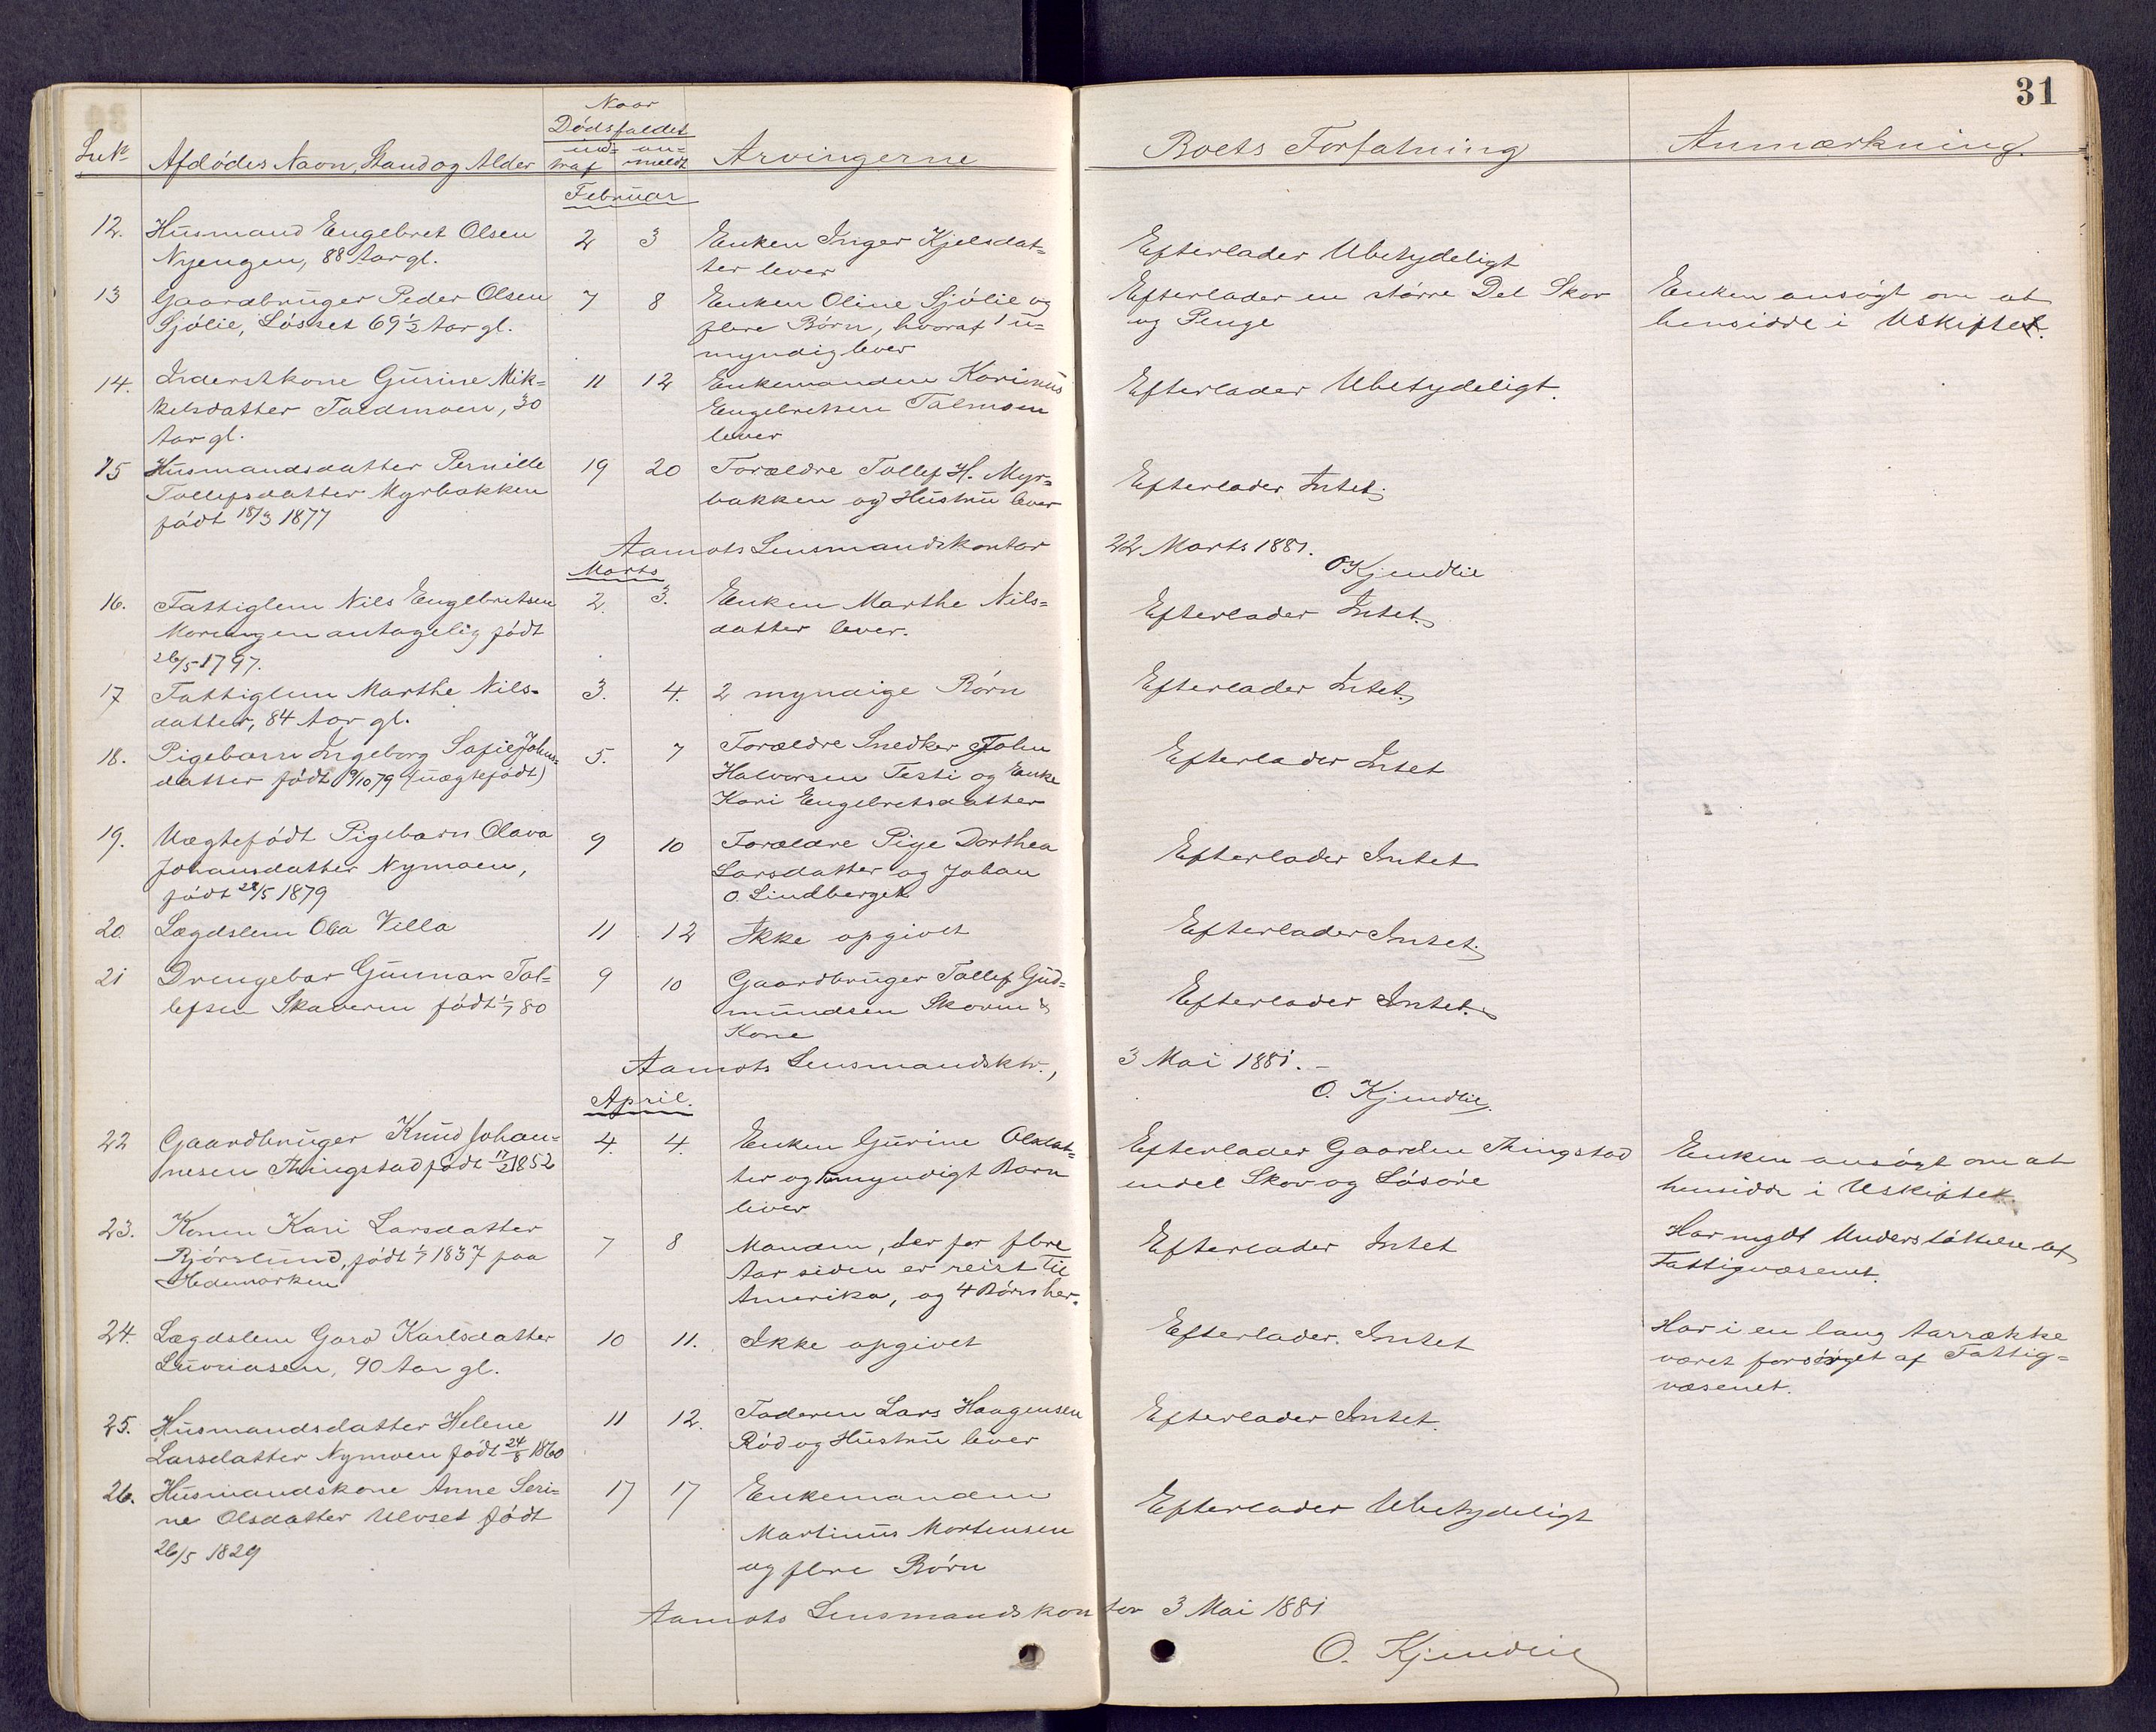 31
Naar
Dødsfaldet
Lb№ Afdødes Navn, Stand og Alder ind- traf an- meldt Arvingerne Boets Forfatning Anmærkning.
Februar
12. Husmand Engebret Olsen 2 3 Enken Inger Kjelsdat= Efterlader Ubetydeligt
Nyengen, 88 Aar gl. ter lever
13 Gaardbruger Peder Olsen 7 8 Enken Oline Sjölie og Efterlader en större Del Skov Enken ansögt om at
Sjölie, Lösset 69½ Aar gl. flere Börn, hvoraf 1 u= og Penge hensidde i Uskiftet.
myndig lever
14. Inderstkone Gurine Mik= 11 12 Enkemanden Karinus Efterlader Ubetydeligt.
kelsdatter Taldmoen, 30 Engebretsen Talmoen
Aar gl. lever
15 Husmandsdatter Pernille 19 20 Forældre Tollef H. Myr= Efterlader Intet.
Tollefsdatter Myrbakken bakken og Hustru lever
födt 18/3 1877
Aamots Lensmandskontor 22 Marts 1881.
O Kjendlie
Marts
16. Fattiglem Nils Engebretsen 2. 3. Enken Marthe Nils= Efterlader Intet.
antagelig födt datter lever.
26/5 1797.
17 Fattiglem Marthe Nils= 3. 4. 2 myndige Börn Efterlader Intet.
datter, 84 Aar gl.
18. Pigebarn Ingeborg Sofie Johns= 5. 7 Forældre Snedker John Efterlader Intet
datter födt 9/10 79 (uægtefödt) Halvorsen Testi og Enke
Kari Engebretsdatter
19. Uægtefödt Pigebarn Olava 9 10 Forældre Pige Dorthea Efterlader Intet
Johansdatter Nymoen, Larsdatter og Johan
födt 28/5 1879 O. Lindberget
20. Lægdslem Ola Villa 11 12 Ikke opgivet Efterlader Intet.
21 Drengebar Gunnar Tol= 9 10 Gaardbruger Tollef Gud= Efterlader Intet.
lefsen Skavern födt 1/7 80 mundsen Skavern &
Kone
Aamots Lensmandsktr., 3 Mai 1881.-
O. Kjendlie.
April.
22 Gaardbruger Knud Johan= 4. 4. Enken Gurine Olsdat= Efterlader Gaarden Thingstad Enken ansögt om at
nesen Thingstad födt 17/2 1852 ter og umyndigt Barn endel Skov og Lösöre hensidde i Uskiftet
lever
23. Konen Kari Larsdatter 7 8 Manden, der for flere Efterlader Intet Har nydt Understöttelse af
Björslund, födt 1/7 1837 paa Aar siden er reist til Fattigvæsenet.
Hedemarken Amerika, og 4 Börn her.
24. Lægdslem Garo Karlsdatter 10 11. Ikke opgivet Efterlader Intet Har i en lang Aarrække
90 Aar gl. været forsörget af Fattig=
væsenet.
25. Husmandsdatter Helene 11 12. Faderen Lars Haagensen Efterlader Intet.
Larsdatter Nymoen födt 24/8 1860 Röd og Hustru lever
26. Husmandskone Anne Seri= 17 17 Enkemanden Efterlader Ubetydeligt
ne Olsdatter Ulvset födt Martinus Mortensen
26/5 1829 og flere Börn
Aamots Lensmandskontor 3 Mai 1881
O. Kjendlie